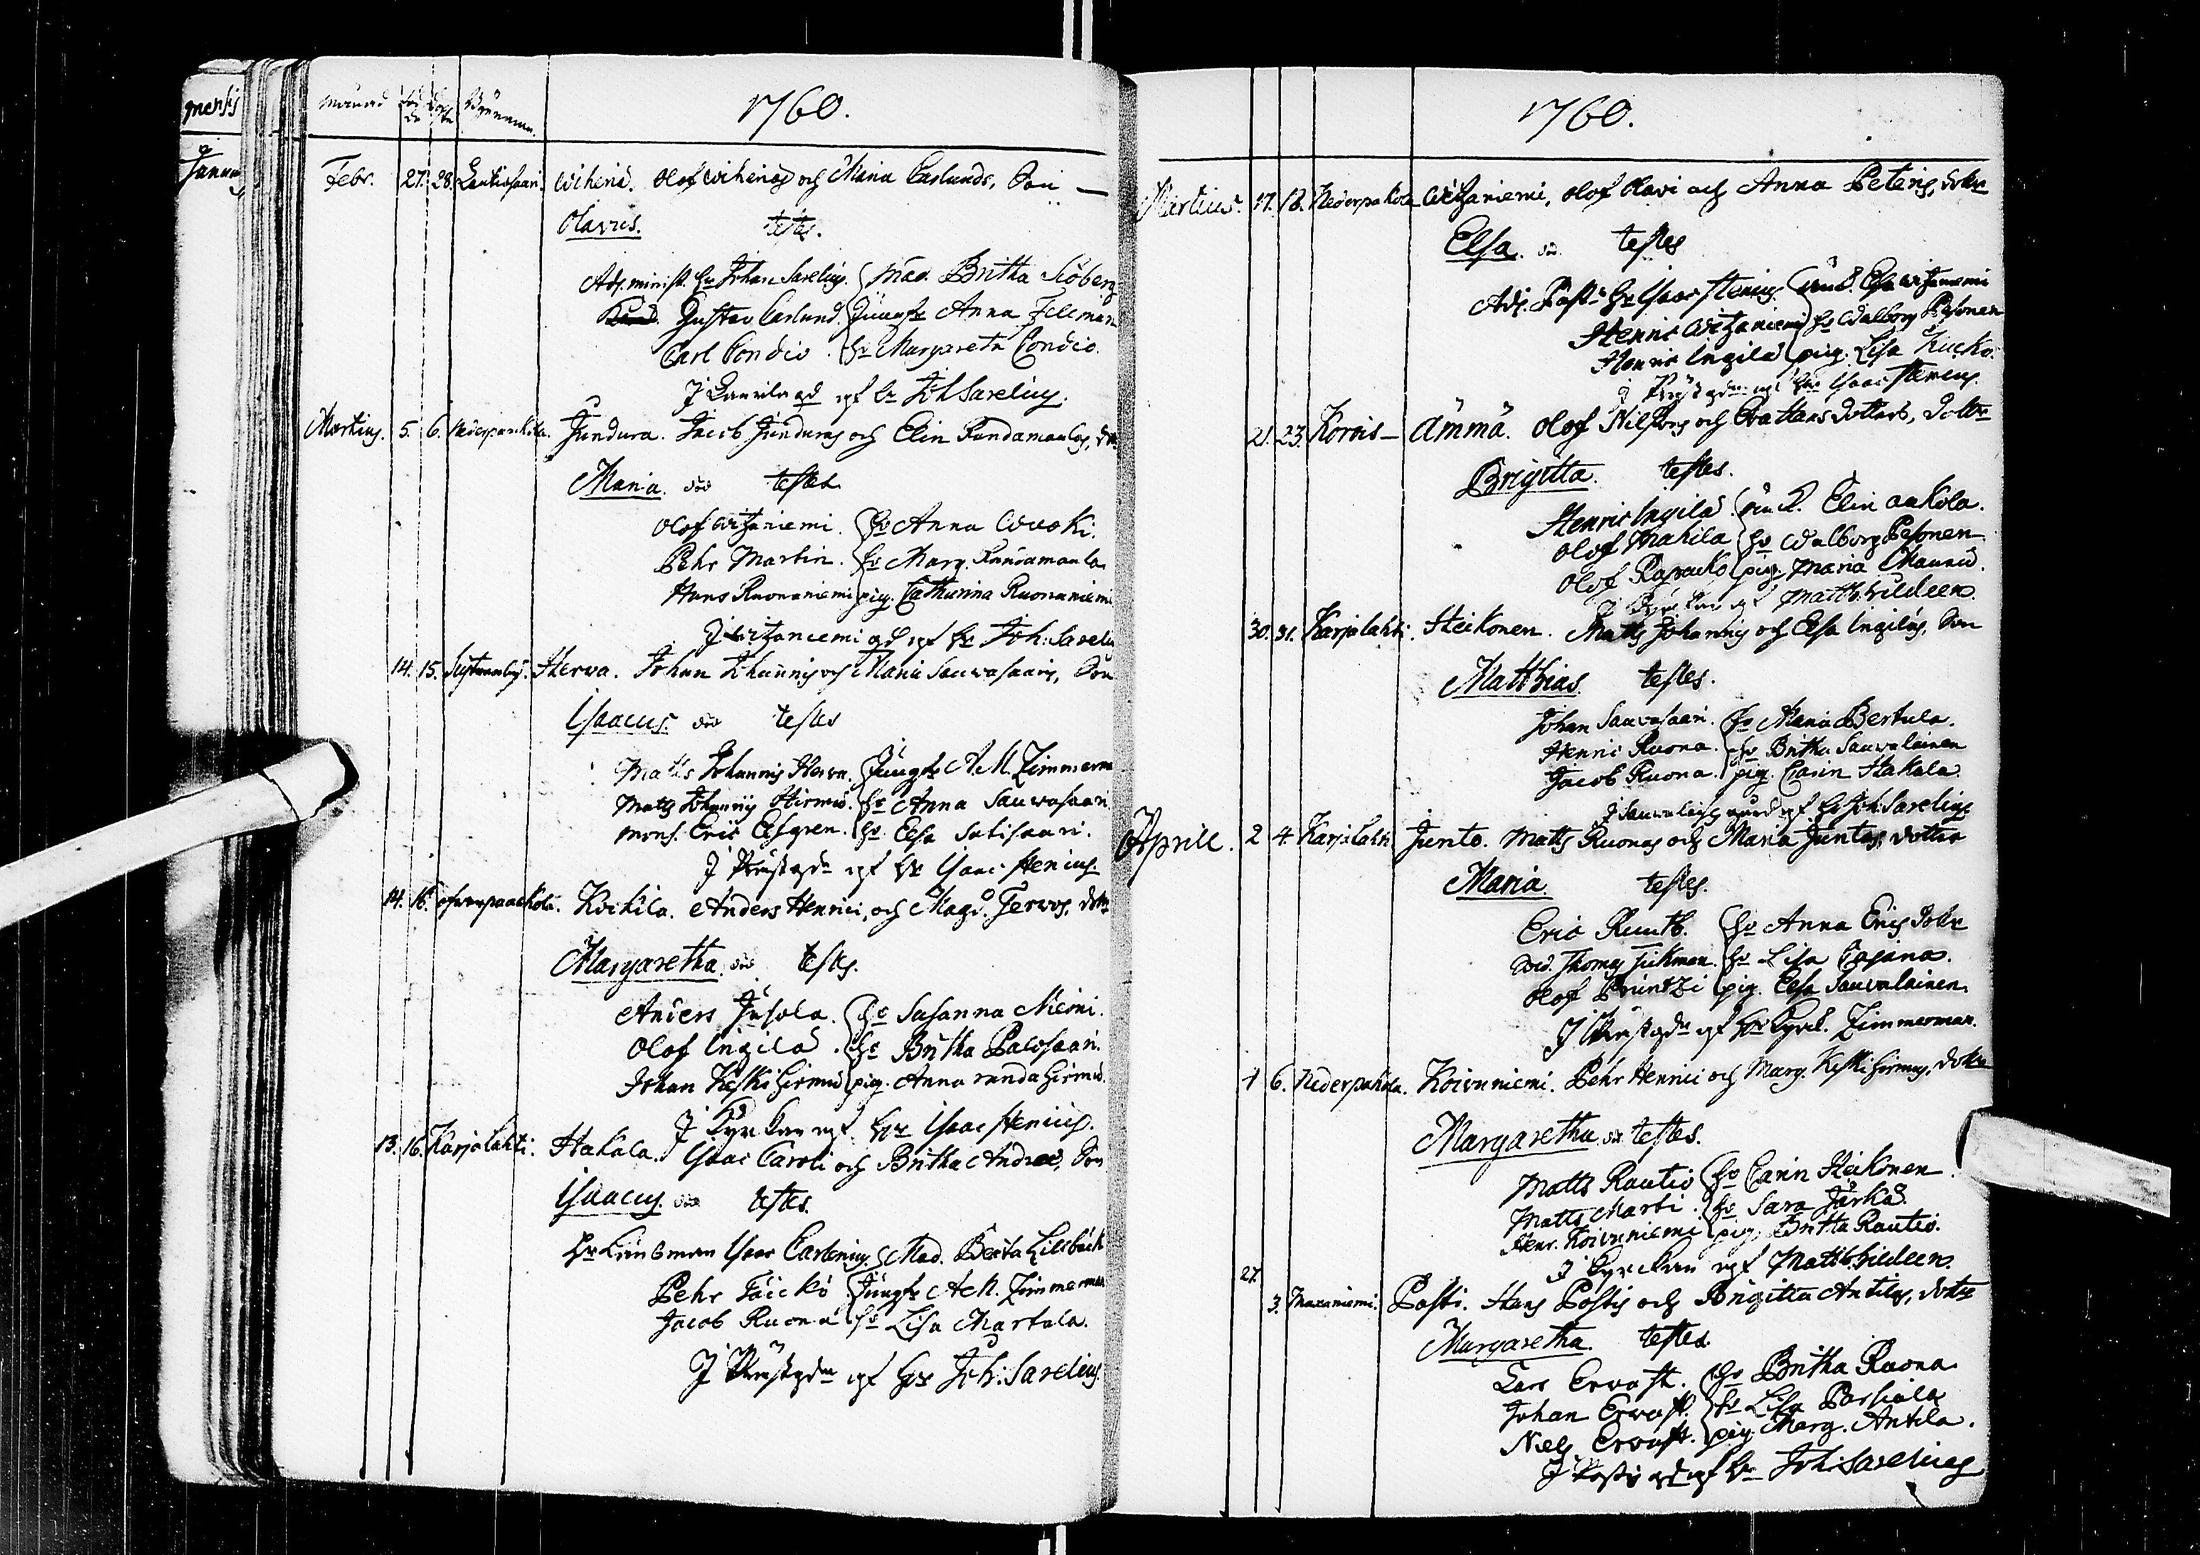 mensis
Janua
månad 1760.
Febr. 27. 28. Lautiosaari. Wihena. Olof Wihenas och Maria Carlunds, Son
Olavus. testes.
Adj. minist. Hr Johan Sarelius. Mad. Britha Siöberg
Gustav Carlund. Jungfr Anna Felman
Carl Condio. Hu Margareta Condio.
J Lauvila gd af Hr Joh Sarelius.
Martius. 5. 6. Nederpaackola. Jundura. Jacob Junduras och Elin Rundamaulas, dr
Maria. testes
Olof Witzaniemi. Hu Anna Wuoki.
Pehr Martin. Hu Marg. Rundamaula
Hans Ruonaniemi pig. Catharina Ruonaniemi
J Witzaniemi gd af Hr Joh: Sareliu
14. 15. Herva. Johan Johannis och Maria Sauvosaaris, Son
Isaacus. testes
Matts Johannis Herva. Jungfr A M. Zimmerm
Matts Johannis Hirmu. Hu Anna Sauvosaari
Mons. Eric Elfgren. Hu Elsa Satisaari.
J Prästgdn af Hr Isaac Stenius.
14. 16. Ofwerpaackola. Kockila. Anders Henrici, och Magd. Jervos, dotr
Margaretha. testes.
Anders Jusola. Hu Susanna Niemi.
Olof Ingilä. Hu Britha Palosaari.
Johan Keskihirmu pig. Anna Randahirmu.
J Kyrckan af Hr Isaac Stenius.
13. 16. Karjalahti. Hakala. Isaac Caroli och Britha Andreæ, Son
Isaacus. testes.
Hr Länsman Isaac Carlenius. Mad. Beata Lillbäck
Pehr Täickö Jungfr A M. Zimmerman
Jacob Ruona Hu Lisa Martala.
J Prästgdn af Hr Joh: Sarelius
1760.
Martius. 17. 18. Nederpakola Witzaniemi, Olof Olavi och Anna Peteris, dotr
Elsa. testes
Adj. Past. Hr Isaac Stenius Elsa Witzaniemi
Henric Witzaniemi Hu Walborg Pesonen
Henric Ingilä pig. Lisa Kucko.
J Prästgdn af Hr Isaac Stenius.
21. 23. Korvis- Ämmä. Olof Nilssons och Eva Hans Dotters, Dotter
Brigitta. testes.
Henric Ingilä. Elin Aakola.
Olof Mahila Hu Walborg Pesonen
Olof Rapacko pig. Maria Maunu.
J Kyrckan af Matth: Gildeen.
30. 31. Karjalahti. Heikonen. Matts Johannis och Elsa Ingiläs, Son
Matthias testes.
Johan Sauvosaari. Hu Maria Bertula.
Henric Ruona. Hu Britha Sauvolainen
Jacob Ruona. pig. Carin Hakala.
J Sauvolais gård af Hr Joh: Sarelius
Aprill. 2 4. Karjalahti Junto. Matts Ruonas och Maria Juntos, dotter
Maria testes.
Eric Ruuth. Hu Anna Erics Dotr
Thomas Fickman. Hu Lisa Cajana.
Olof Printzi pig. Elsa Sauvolainen.
J Prästgdn af Hr Kyrk. Zimmerman.
1 6. Nederpakola. Koivuniemi. Pehr Henrici och Marg. Keskihirmus, dotr
Margaretha testes.
Matts Rautio Hu Carin Heikonen
Matts Marti. Hu Sara Järkä
Henr. Koivuniemi pig. Britta Rautio.
J Kyrckan af Matth. Gildeen.
27. 3. Maxaniemi. Posti. Hans Postis och Brigitta Antilas, dotr
Margaretha. testes
Lars Ervast. Hu Britha Ruona
Johan Ervast. Hu Lisa Parsiala
Nils Ervast. pig. Marg. Antila.
J Postis gd af Hr Joh: Sarelius